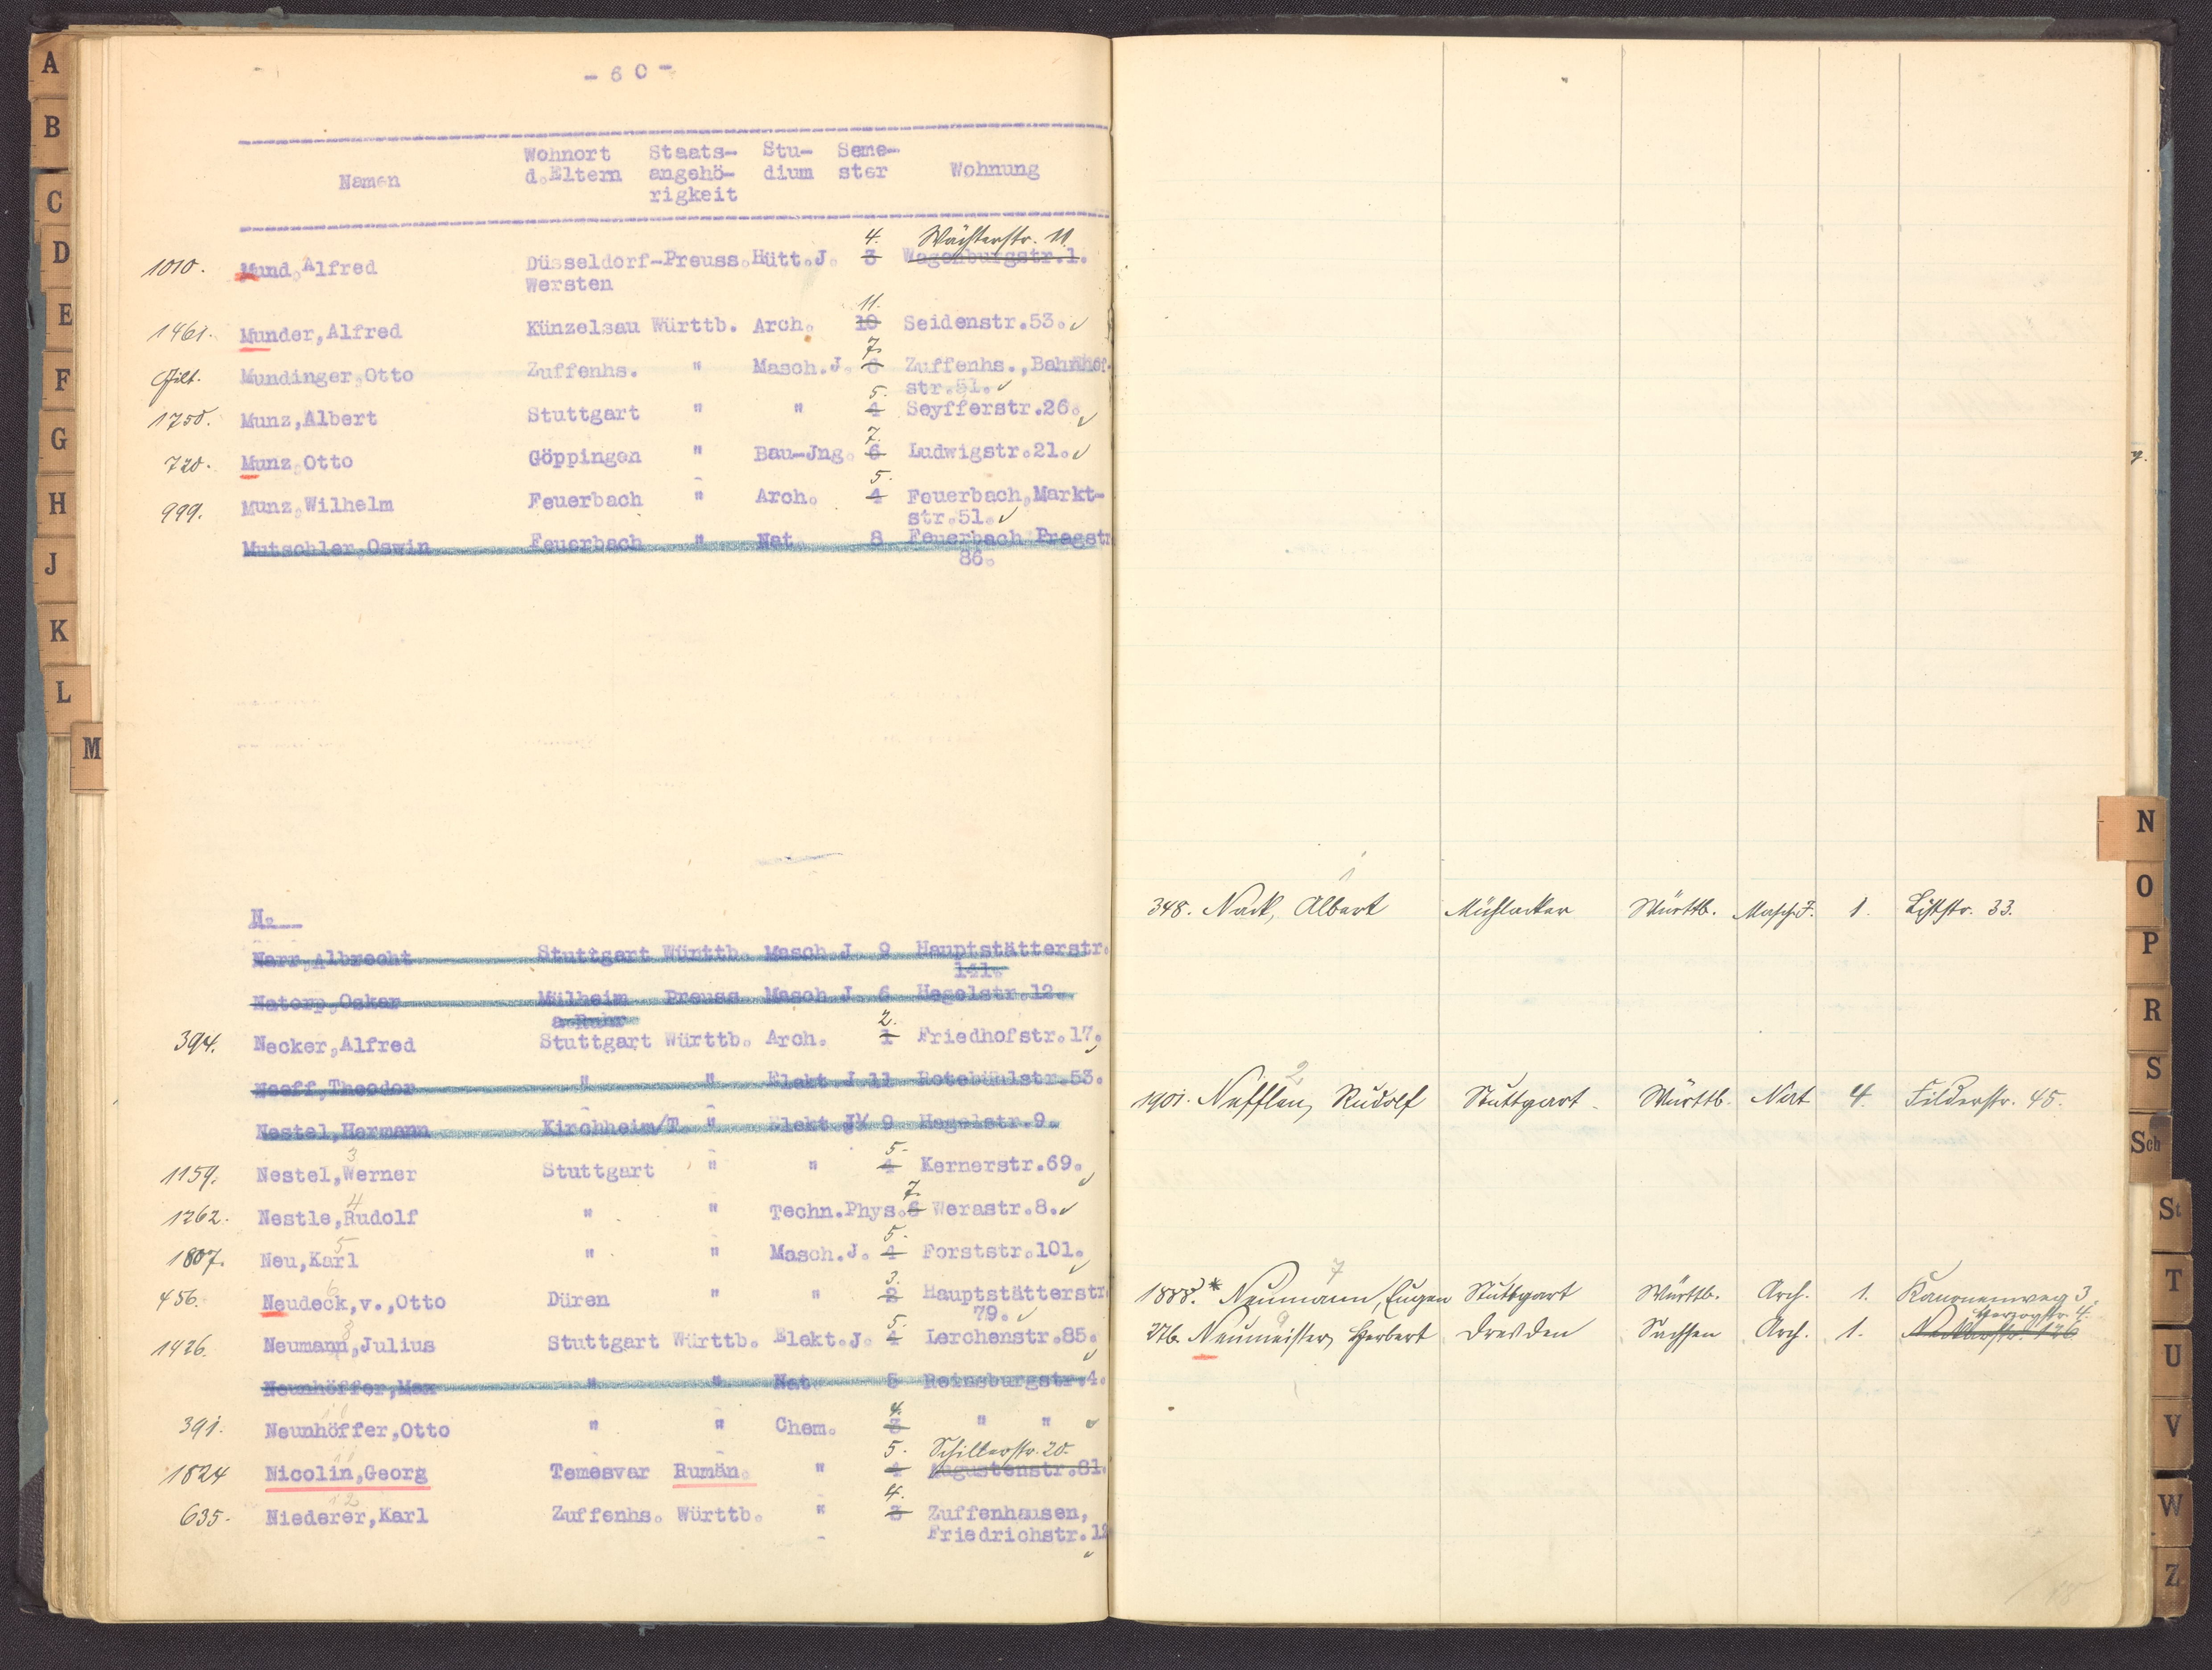 - 6 0 -
Namen Wohnort d.Eltern Staats-angehö-rigkeit Stu-dium Seme-ster Wohnung
4. Wächterstr. 11.
1010. Mund,Alfred Düsseldorf-Preuss.Hütt.J. 3 Wagenburgstr.1.
Wersten
11.
1461. Munder,Alfred Künzelsau Württb. Arch. 10 Seidenstr.53.
7.
Mundinger,Otto Zuffenhs. " Masch.J. 6 Zuffenhs.,Bahnhof-
5. str.51.
1750. Munz,Albert Stuttgart " " 4 Seyfferstr.26.
7.
720. Munz,Otto Göppingen " Bau-Jng. 6 Ludwigstr.21.
5.
999. Munz,Wilhelm Feuerbach " Arch. 4 Feuerbach,Markt-
str.51.
Mutschler,Oswin Feuerbach " Nat. 8 Feuerbach Pragstr
86.
N.
Narr,Albrecht Stuttgart Württb. Masch.J. 9 Hauptstätterstr.
141.
Natorp,Oskar Mülheim Preuss. Masch.J. 6 Hegelstr.12.
a.Ruhr 2.
394. Necker,Alfred Stuttgart Württb. Arch. 1 Friedhofstr.17.
Neeff,Theodor " " Elekt.J. 11 Rotebühlstr.53.
Nestel,Hermann Kirchheim/T. " Elekt.J. 9 Hegelstr.9.
3 5.
1159. Nestel,Werner Stuttgart " " 4 Kernerstr.69.
4 7.
1262. Nestle,Rudolf " " Techn.Phys.6 Werastr.8.
5 5.
1807. Neu,Karl " " Masch.J. 4 Forststr.101.
6 3.
456. Neudeck,v.,Otto Düren " " 2 Hauptstätterstr.
79.
8 5.
1426. Neumann,Julius Stuttgart Württb. Elekt.J. 4 Lerchenstr.85.
Neunhöffer,Max " " Nat. 5 Reinsburgstr.4.
10 4.
391. Neunhöffer,Otto " " Chem. 3 " "
11 5. Schillerstr. 20.
1824 Nicolin,Georg Temesvar Rumän. " 4 Augustenstr.81.
12 4.
635. Niederer,Karl Zuffenhs. Württb. " 3 Zuffenhausen,
Friedrichstr.12
1
348. Nack, Albert Mühlacker Württb. Masch.J. 1. Liststr. 33.
2
1901. Nefflen, Rudolf Stuttgart Württb. Nat 4. Filderstr. 45.
7
1888.* Neumann, Eugen Stuttgart Württb. Arch. 1. Kanonenweg 3.
9 Herzogstr. 4.
376. Neumeister, Herbert Dresden Sachsen Arch. 1. Neckarstr. 126
A
B
C
D
E
F
G
H
J
K
L
M
N
O
P
R
S
Sch
St
T
U
V
W
Z